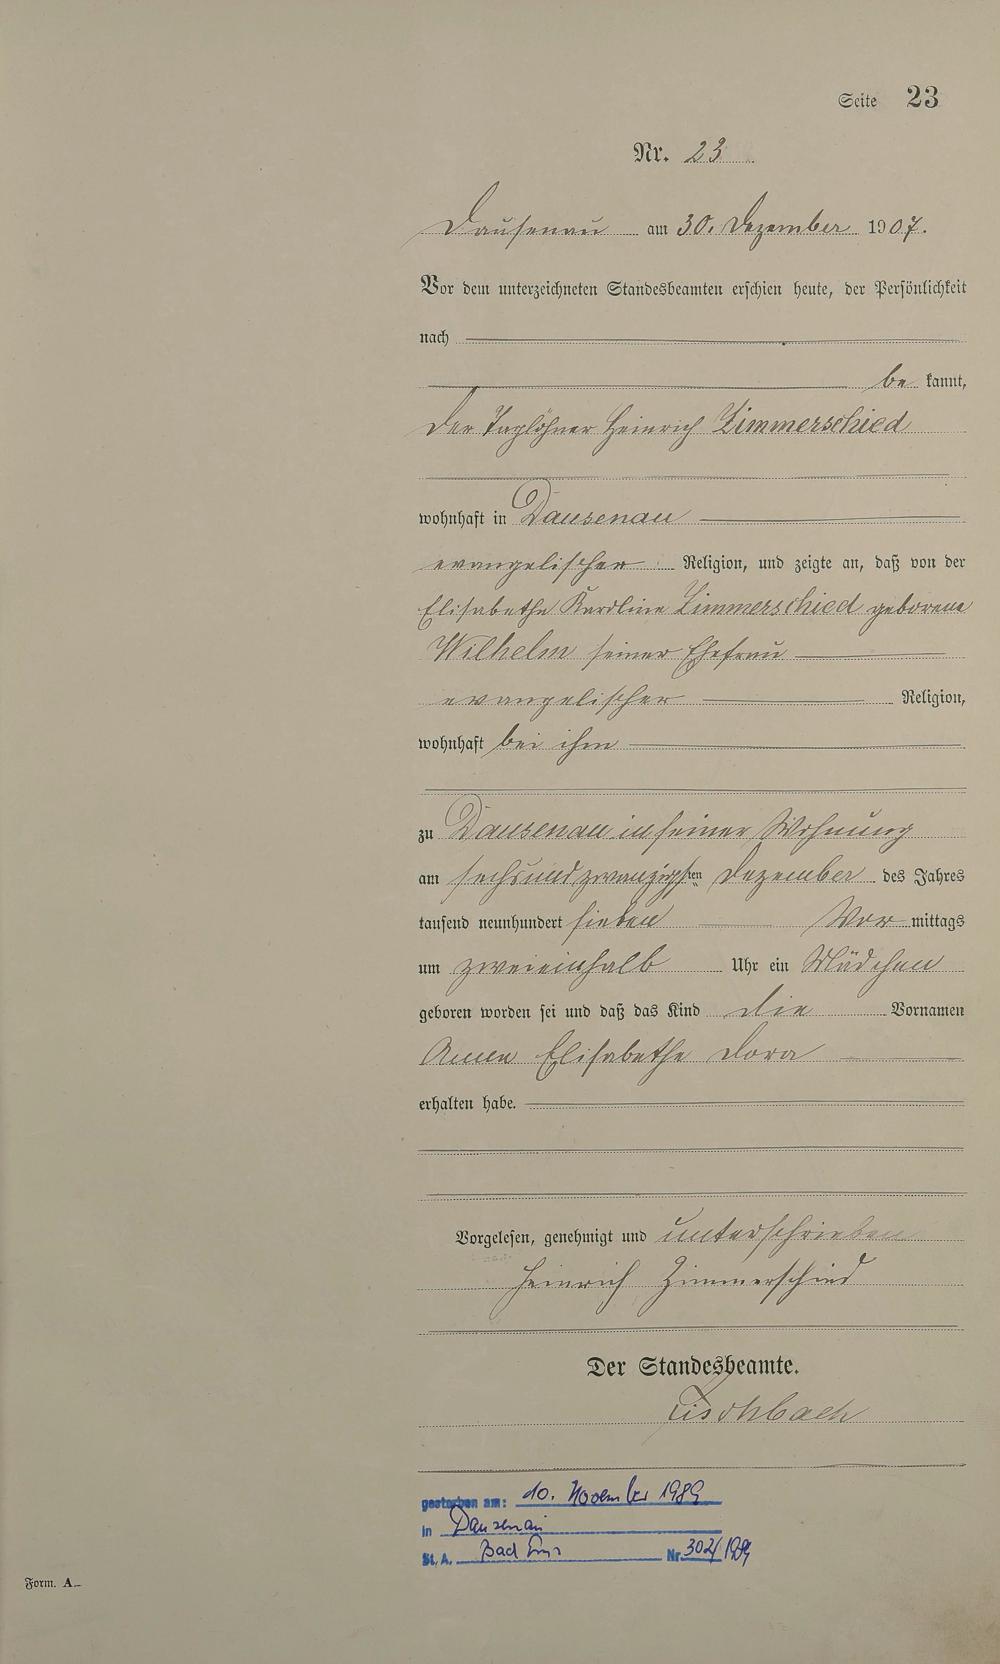 Seite 23
Nr. 23
Dausenau am 30. Dezember 1907.
Vor dem unterzeichneten Standesbeamten erschien heute, der Persönlichkeit
nach
be kannt,
der Taglöhner Heinrich Zimmerschied
wohnhaft in Dausenau
evangelischer Religion, und zeigte an, daß von der
Elisabethe Karoline Zimmerschied geborene
Wilhelm seiner Ehefrau
evangelischer Religion,
wohnhaft bei ihm
zu Dausenau in seiner Wohnung
am sechsundzwanzigsten Dezember des Jahres
tausend neunhundert sieben Vor mittags
um zweieinhalb Uhr ein Mädchen
geboren worden sei und daß das Kind die Vornamen
Anna Elisabethe Dora
erhalten habe.
Vorgelesen, genehmigt und unterschrieben
Heinrich Zimmerschied
Der Standesbeamte.
Fischbach
gestorben am: 10. November 1989
in Dausenau
St. A. Bad Ems Nr. 302/1989
Form. A.